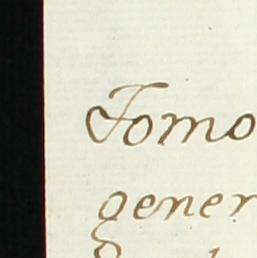 Tomo
gener